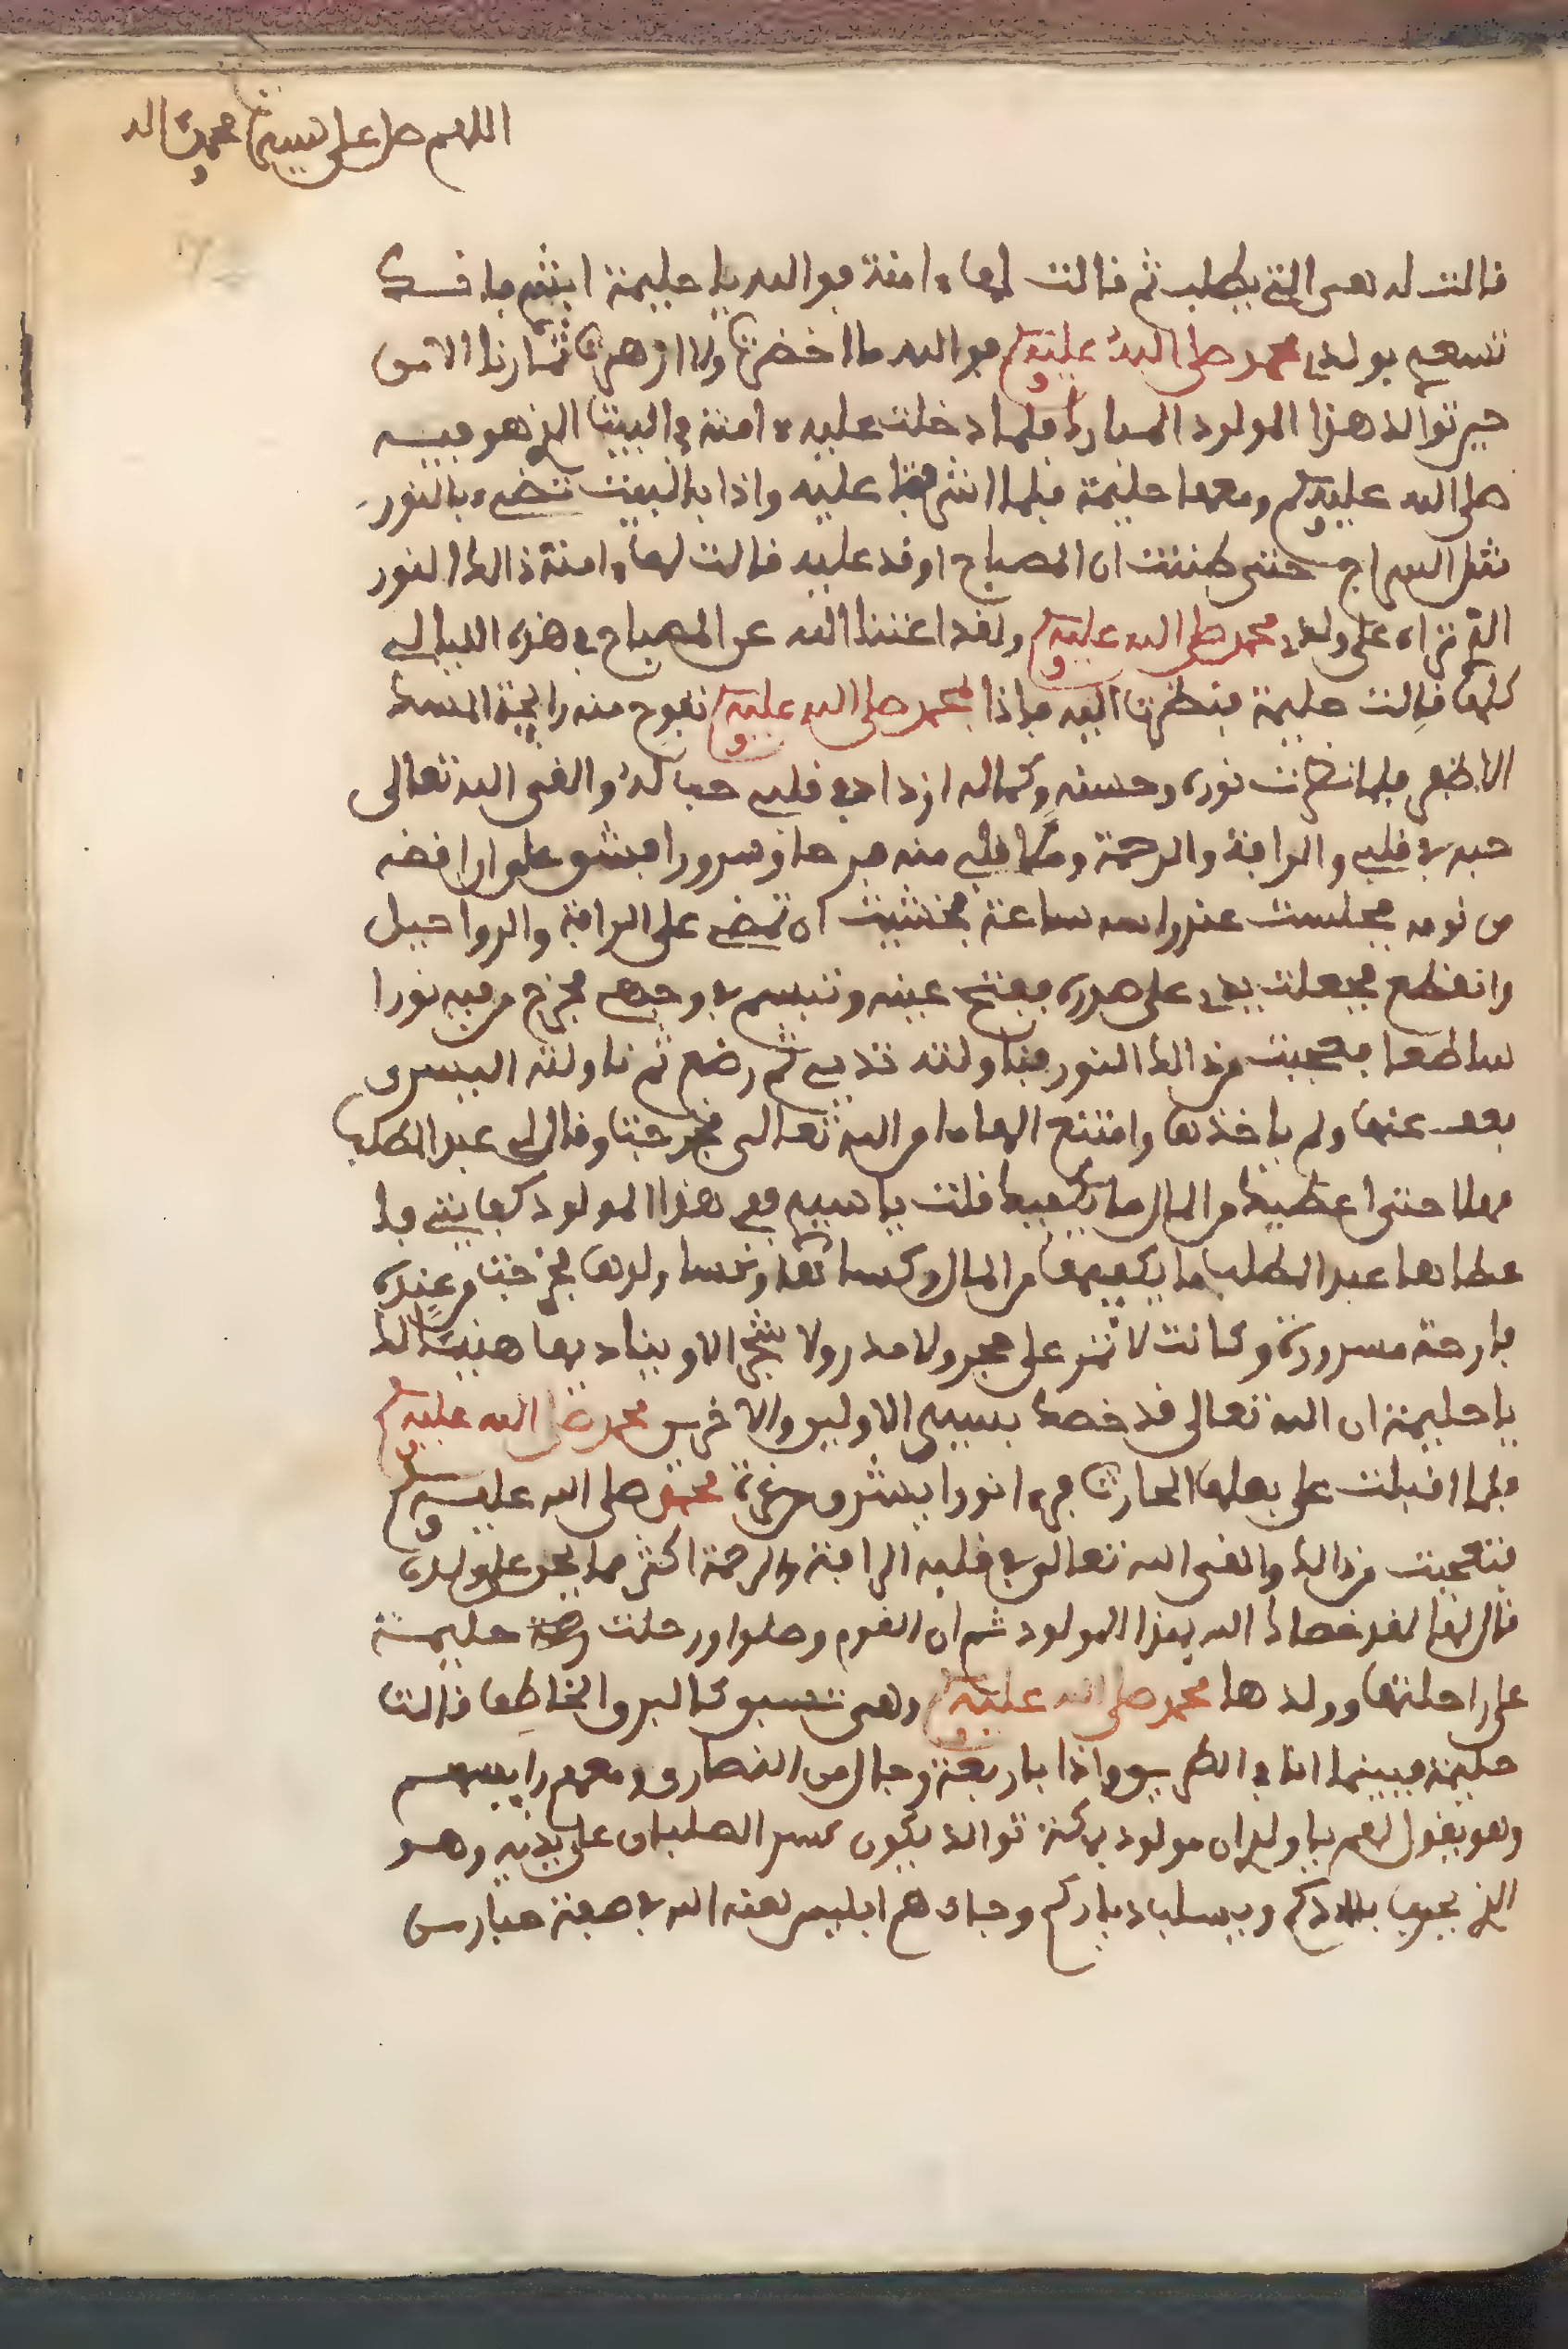 اللهم صل على نبينا محمد واله
قالت له هى التي يطلب ثم قالت لها ءامنة فوالله يا حليمة ابشر فانك
تسعد بولدي محمد صلى الله عليه وسلم فوالله ما اخضرت ولا ازهرت ثمارنا الا من
حين توالد هذا المولود المبارك فلما دخلت عليه ءامنة في البيت الذي هو فيه
صلى الله عليه وسلم ومعها حليمة فلما اشرفت عليه واذا بالبيت تضيء بالنور
مثل السراج حتى ظننت ان المصباح اوقد عليه فالت لها ءامنة ذالك النور
التي تراه على ولدي محمد صلى الله عليه وسلم ولقد اغننا الله عن المصباح في هذه الليالي
كلها قالت حليمة فنظرت اليه فاذا بمحمد صلى الله عليه وسلم تفوح منه رايحة المسك
الاظفر فلما نظرت نوره وحسنه وكماله ازداد في قلبي حبا له والقى الله تعالى
حبه في قلبي والرافة والرحمة وملا قلبي منه فرحا وسرورا فشق علي ان افضه
من نومه فجلست عند راسه ساعة فخشيت ان تمضي على الرافة والرواحيل
وانقطع فجعلت يدي على صدره ففتح عينه وتبسم في وجهي فخرج من فيه نورا
ساطعا فعجبت من ذالك النور فناولته ثديي ثم رضع ثم ناولته اليسرى
بعد عنها ولم ياخذها وامتنع الهاما من الله تعالى فخرجنا وقال لي عبد المطلب
مهلا حتى اعطيك من المال ما يكفيك قلت يا سيدي ففي هذا المولود كفايتي فا
عطاها عبد المطلب ما يكفيها من المال وكساتها وكسا ولدها فخرجت من عنده
فارحة مسرورة وكانت لا تمر على حجر ولا مدر ولا شجر الا ويناديها هنيئا لك
يا حليمة ان الله تعالى قد خصك بسيد الاولين والاخرين محمد صلى الله عليه وسلم
فلما اقبلت على بعلها الحارث فرءا نورا يشرق من غرة محمد صلى الله عليه وسلم
فتعجبت من ذالك والقى الله تعالى في قلبه الرافة والرحمة اكثر مما يحن على ولده
قال لها لقد خصك الله بهذا المولود ثم ان القوم وصلوا ورحلت حليمة
على راحلتها وولدها محمد صلى الله عليه وسلم وهى تسبق كالبرق الخاطف قالت
حليمة فبينما انا في الطريق واذا باربعة رجال من النصارى ومعهم رايسهم
وهو يقول لهم يا ولدان مولود بمكة توالد يكون كسر الصلبان على يديه وهو
الذي يخرب بلادكم ويسلب دياركم وجاءهم ابليس لعنه الله في صفة حبار من